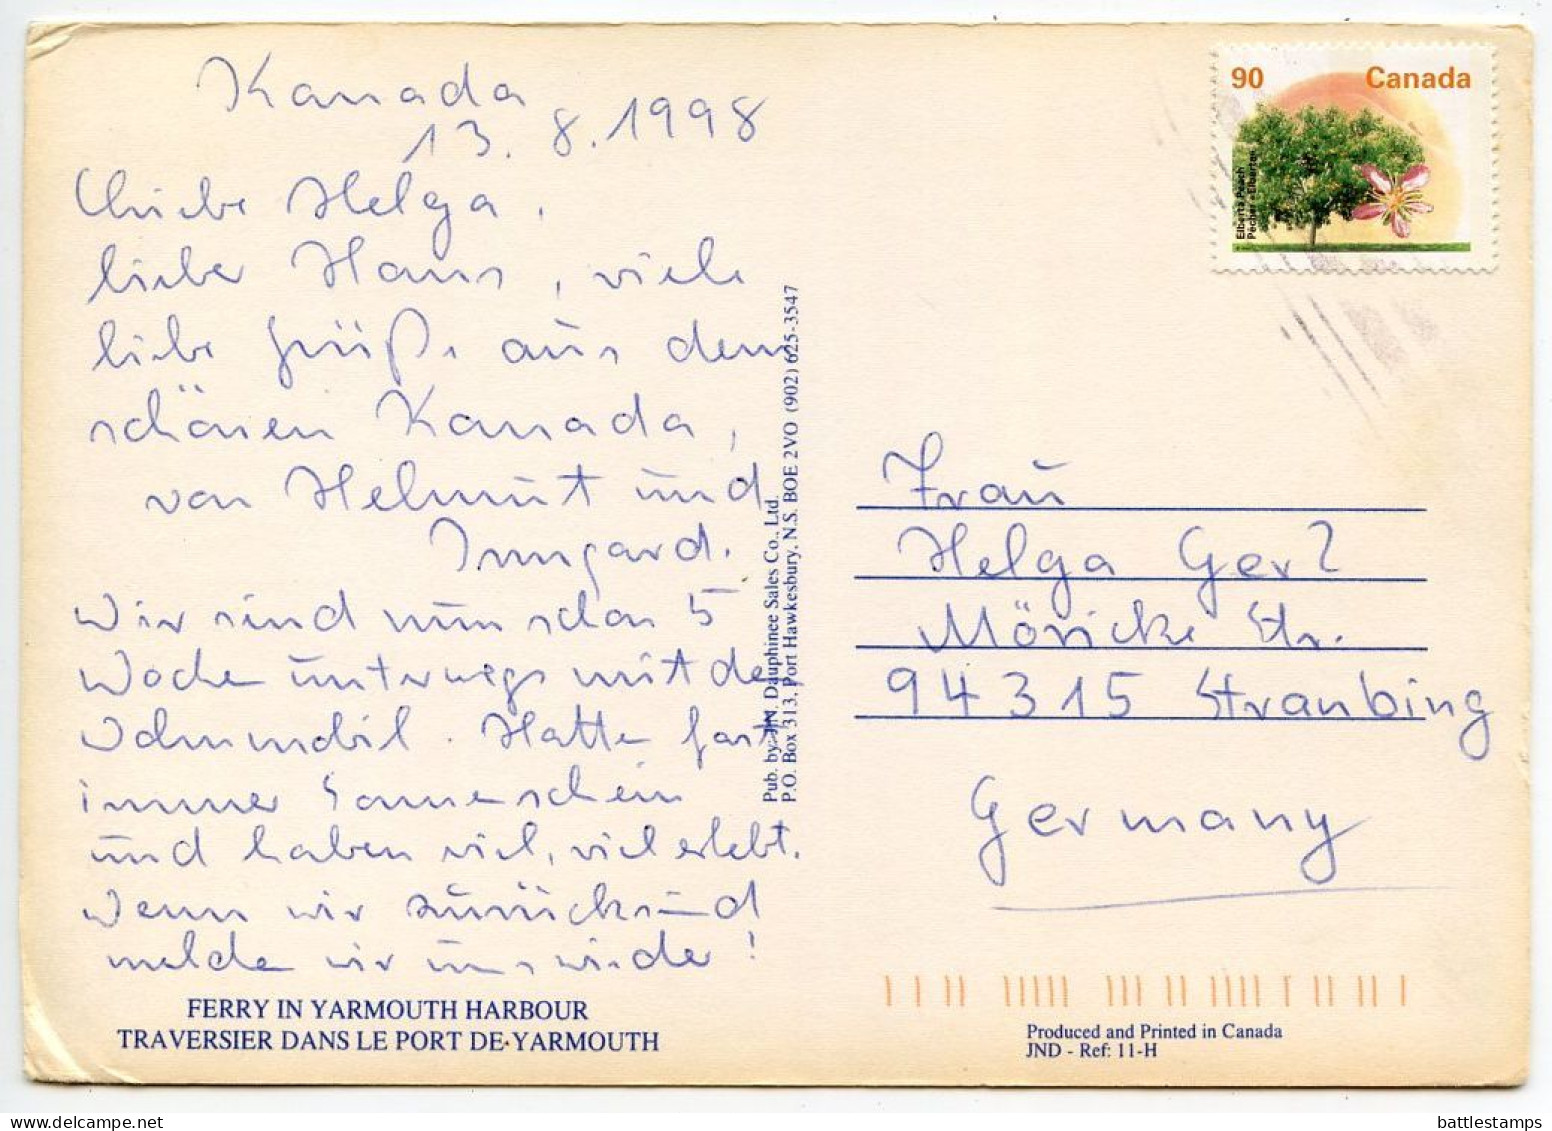 Kanada
13.8.1998
Liebe Helga,
lieber Hans, viele
liebe Grüße aus dem
schönen Kanada,
von Helmut und
Irmgard.
Wir sind nun schon 5
Wochen unterwegs mit dem
Wohnmobil. Hatten fast
immer Sonnenschein
und haben viel, viel erlebt.
Wenn wir zurück sind
melden wir uns wieder!
FERRY IN YARMOUTH HARBOUR
TRAVERSIER DANS LE PORT DE YARMOUTH
Pub. by: J.N. Dauphinee Sales Co., Ltd.
P.O. Box 313, Port Hawkesbury, N.S. BOE 2VO (902) 625-3547
90 Canada
Elberta Peach
Pêcher Elberta
Frau
Helga Gerl
Möricke Str.
94315 Straubing
Germany
Produced and Printed in Canada
JND - Ref: 11-H
battlestamps